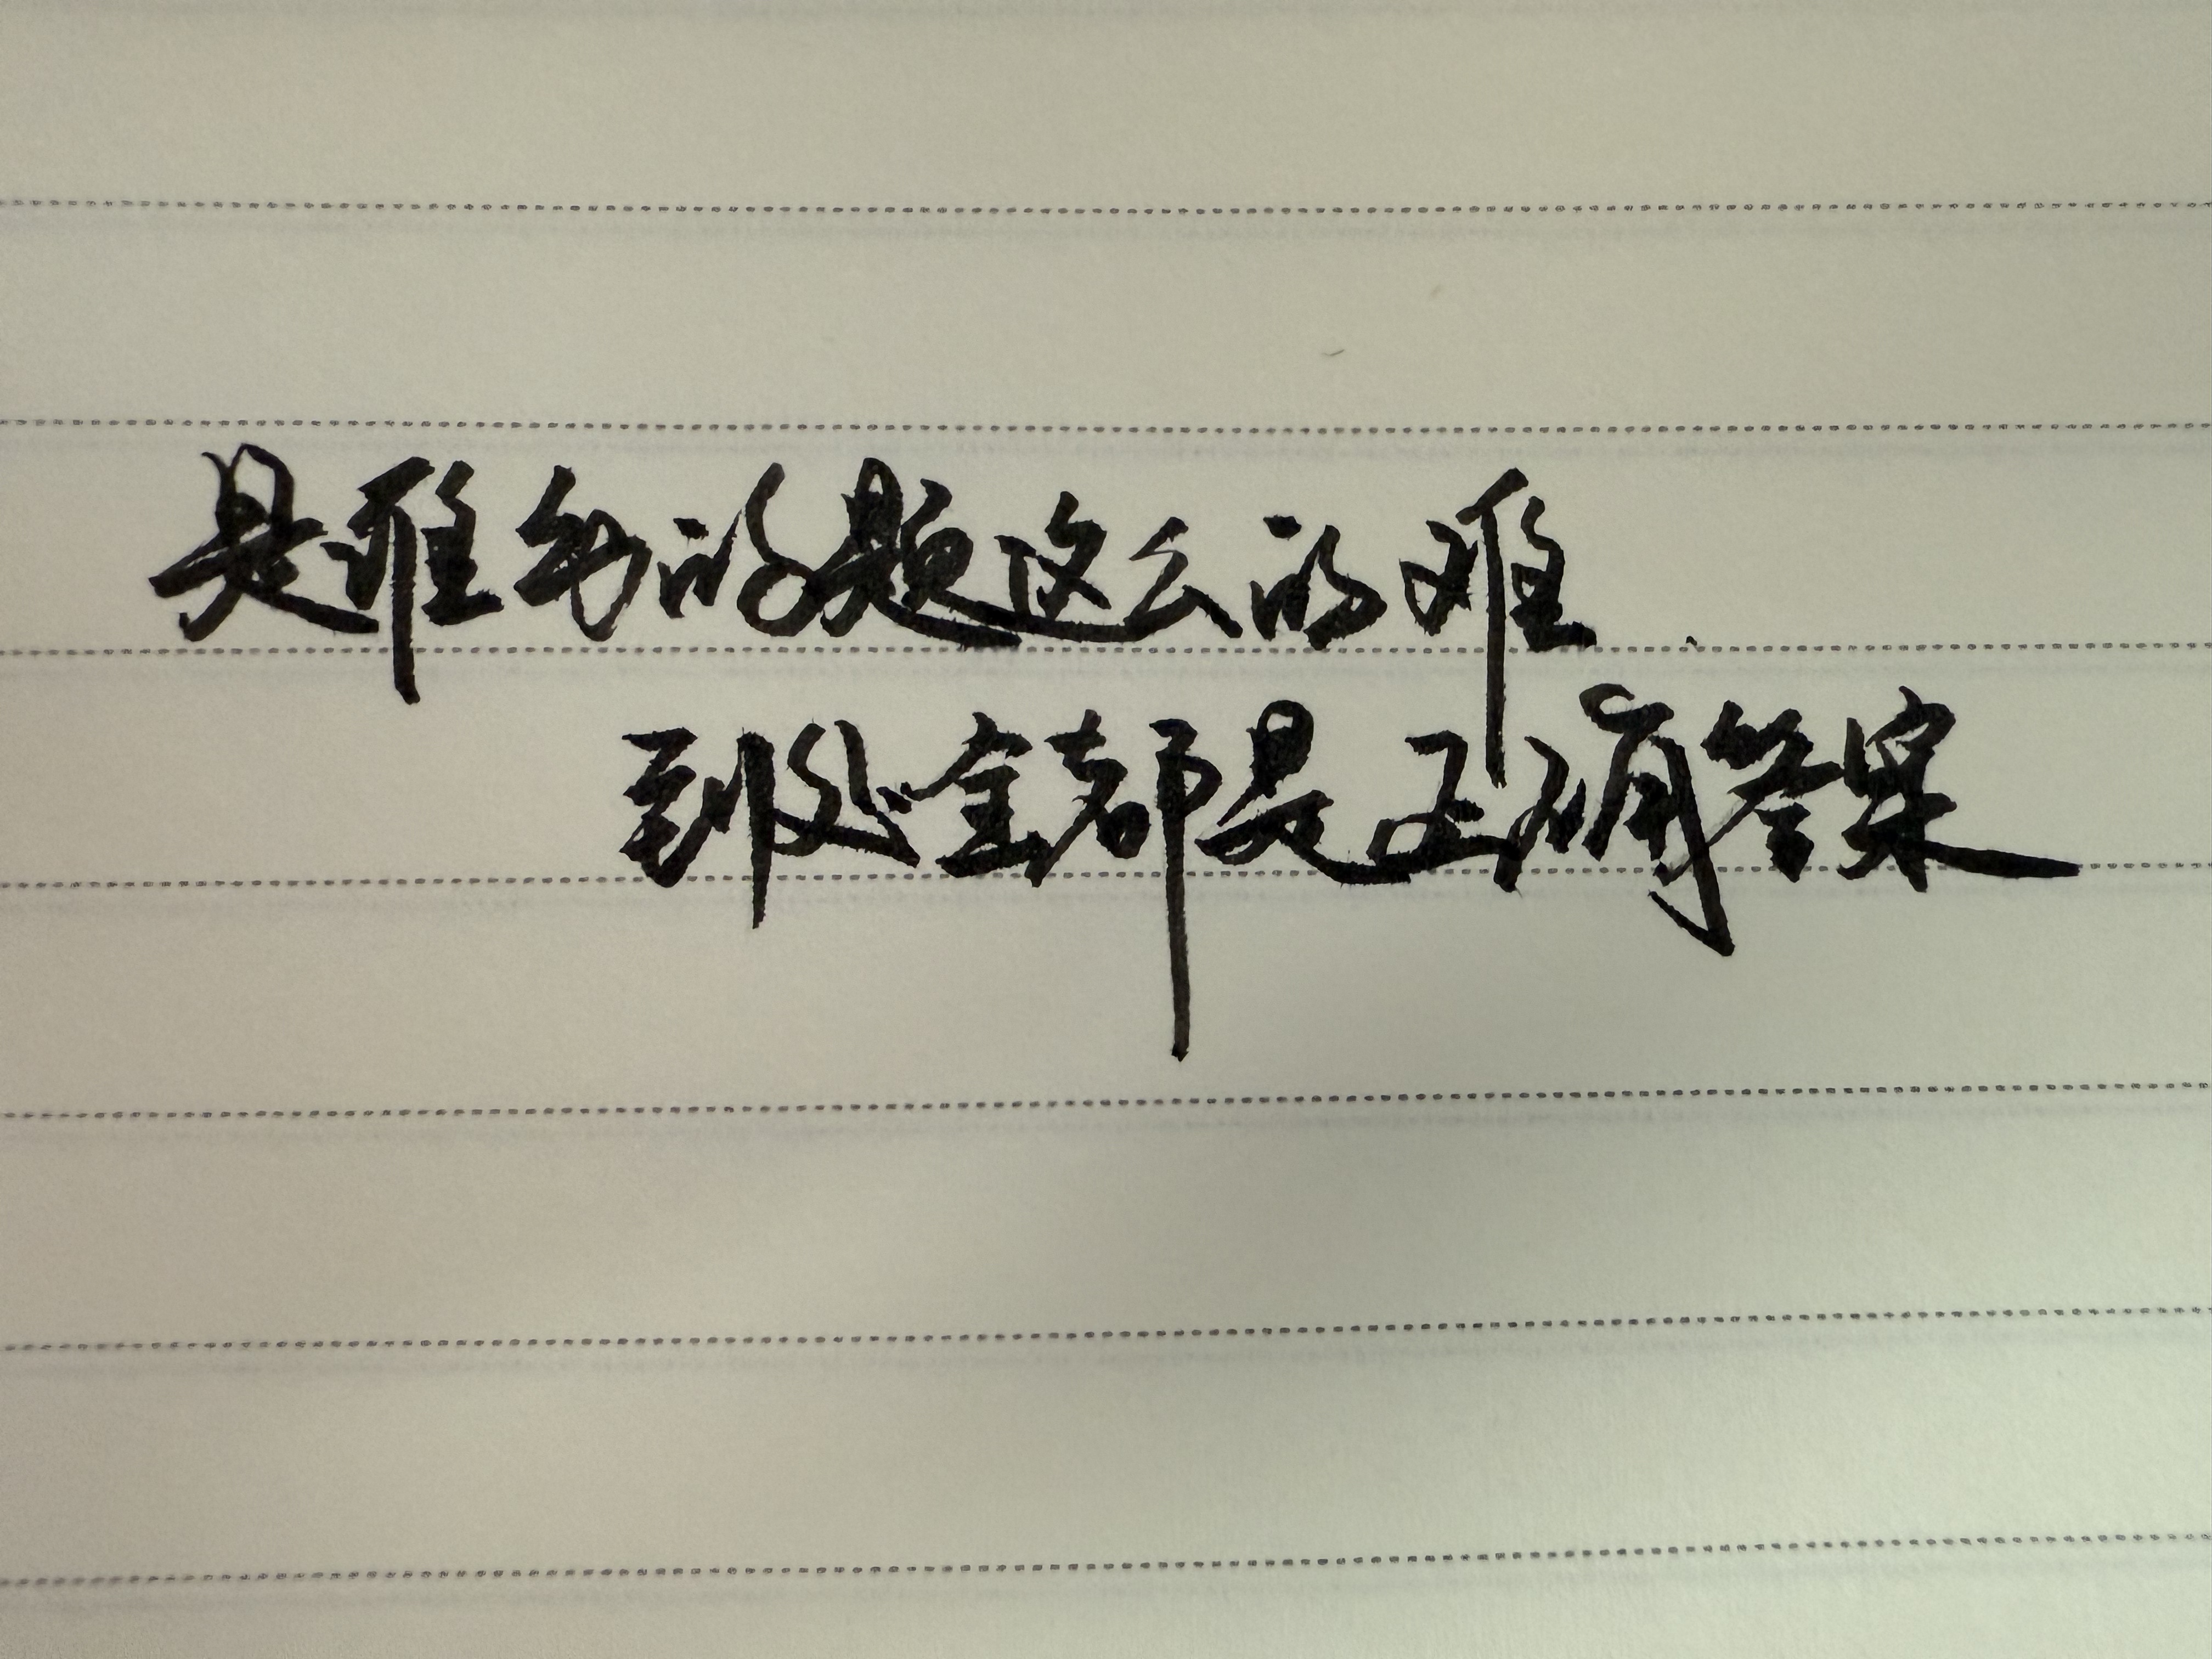 是谁出的题这么的难
到处全都是正确答案